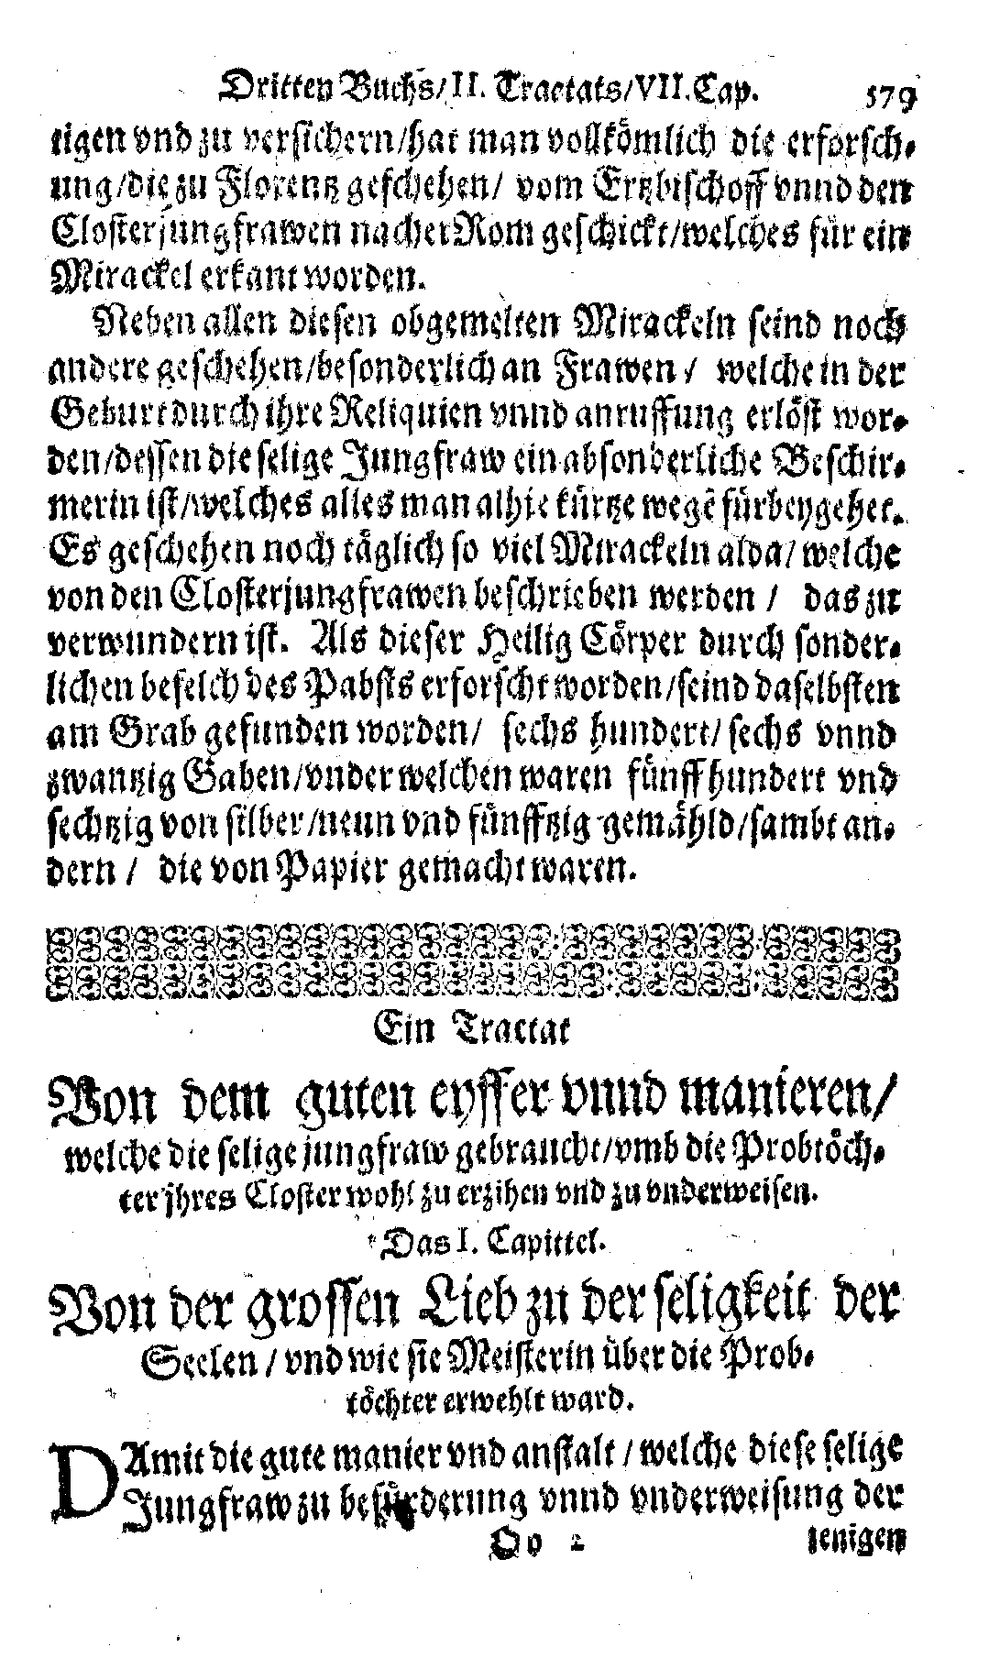 Dritten Buchs/II. Tractats/VII. Cap. 579
tigen vnd zu versichern/hat man vollkömlich die erforsch-
ung/die zu Florentz geschehen/ vom Ertzbischoff vnnd den
Closterjungfrawen nacher Rom geschickt/welches für ein
Mirackel erkant worden.
Neben allen diesen obgemelten Mirackeln seind noch
andere geschehen/besonderlich an Frawen/ welche in der
Geburt durch ihre Reliquien vnnd anruffung erlöst wor-
den/dessen die selige Jungfraw ein absonderliche Beschir-
merin ist/welches alles man alhie kürtze wegē fürbeygehet.
Es geschehen noch täglich so viel Mirackeln alda/welche
von den Closterjungfrawen beschrieben werden/ das zu
verwundern ist. Als dieser Heilig Cörper durch sonder-
lichen befelch des Pabsts erforscht worden/seind daselbsten
am Grab gefunden worden/ sechs hundert/sechs vnnd
zwantzig Gaben/vnder welchen waren fünffhundert vnd
sechtzig von silber/neun vnd fünfftzig gemähld/sambt an-
dern/ die von Papier gemacht waren.
Ein Tractat
Von dem guten eyffer vnnd manieren/
welche die selige jungfraw gebraucht/vmb die Probtöch-
ter jhres Closter wohl zu erzihen vnd zu vnderweisen.
Das I. Capittel.
Von der grossen Lieb zu der seligkeit der
Seelen/vnd wie sie Meisterin über die Prob-
töchter erwehlt ward.
DAmit die gute manier vnd anstalt/welche diese selige
Jungfraw zu befürderung vnnd vnderweisung der
Oo 2 jenigen